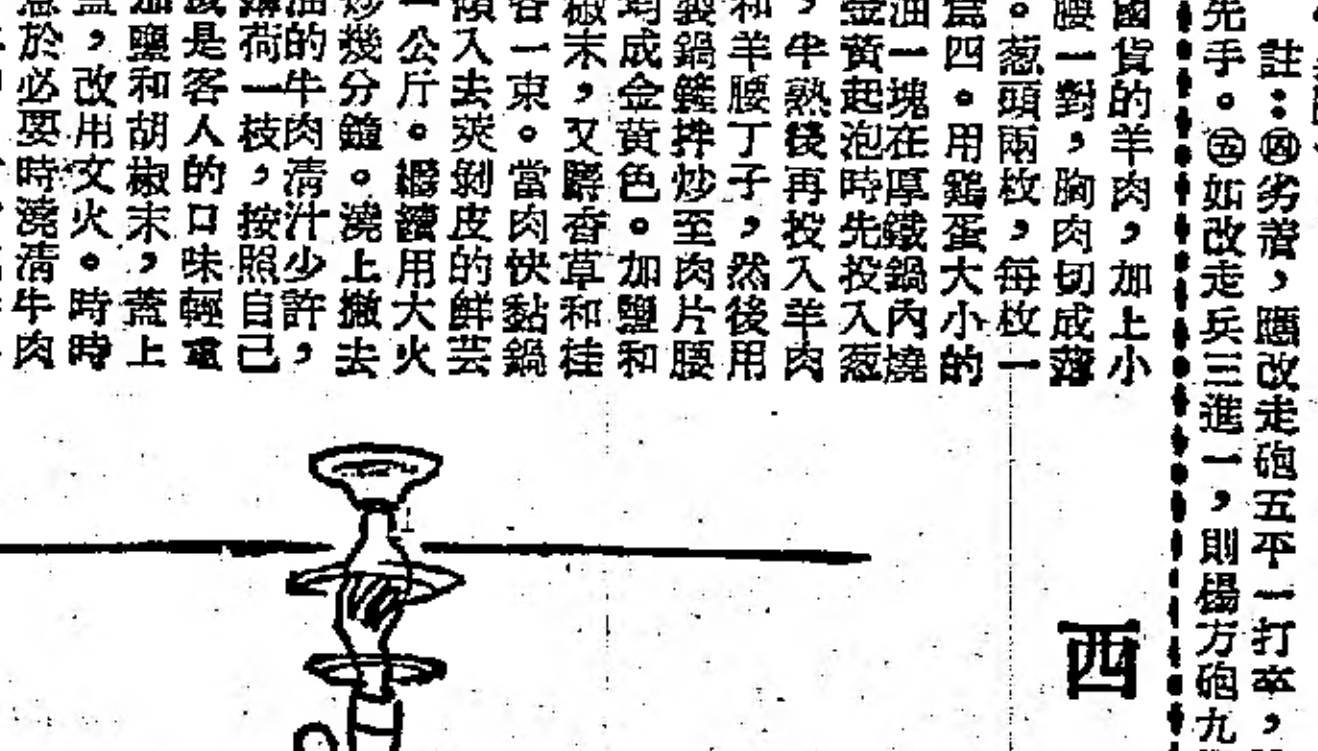 註：㊃劣着，應改走砲五平一打卒，
先手。㊄如改走兵三進一，則楊方砲九
國貨的羊肉，加上小
腰一對，胸肉切成薄
。葱頭兩枚，每枚一
爲四。用鷄蛋大小的
油一塊在厚鐵鍋內燒
金黃起泡時先投入葱
，半熟後再投入羊肉
和羊腰丁子，然後用
製鍋鏟拌炒至肉片腰
均成金黃色。加鹽和
椒末，又麝香草和桂
各一束。當肉快黏鍋
傾入去莢剝皮的鮮芸
一公斤。繼續用大火
炒幾分鐘。澆上撇去
油的牛肉清汁少許，
薄荷一枝，按照自己
或是客人的口味輕重
加鹽和胡椒末，蓋上
蓋，改用文火。時時
意於必要時澆清牛肉
西